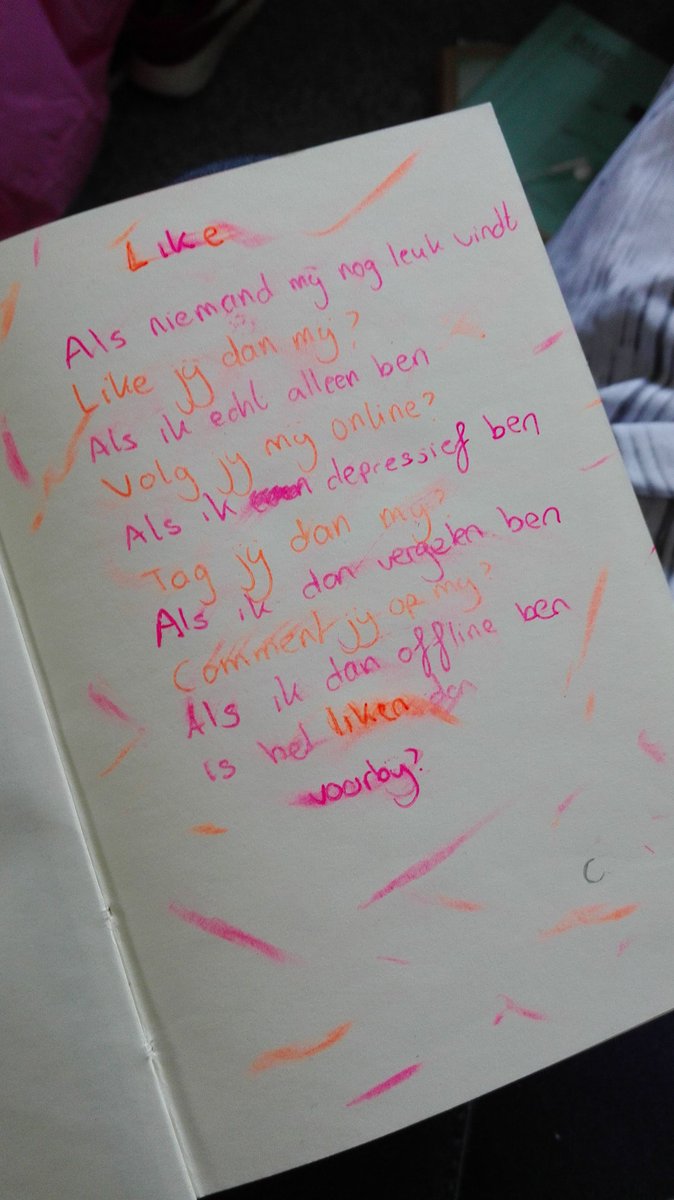 Like
Als niemand mij nog leuk vindt
Like jij dan mij?
Als ik echt alleen ben
Volg jij mij online?
Als ik depressief ben
Tag jij dan mij?
Als ik dan vergeten ben
Comment jij op mij?
Als ik dan offline ben
is het liken dan
voorbij?
C